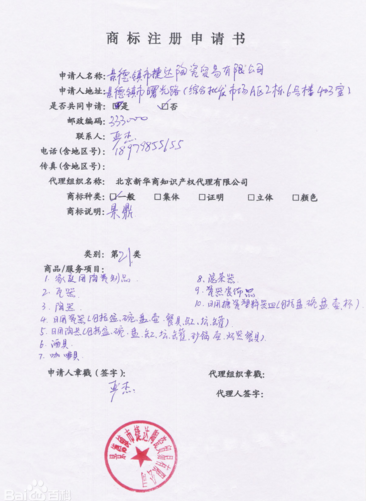 商标注册申请书
申请人名称:景德镇市捷达陶瓷贸易有限公司
申请人地址:景德镇市曙光路(综合批发市场A区2栋6号楼403室)
是否共同申请:□是 □否
邮政编码:333000
联系人:
电话(含地区号):18979855655
传真(含地区号):
代理组织名称:北京新华商知识产权代理有限公司
商标种类:□一般 □集体 □证明 □立体 □颜色
商标说明:景鼎
类别:第21类
商品/服务项目:
1. 家庭用陶瓷制品
2. 瓷器
3. 陶器
4. 日用瓷器(包括盆、碗、盘、壶、餐具、缸、坛、罐)
5. 日用陶器(包括盆、碗、盘、缸、坛、罐、砂锅、壶、炻器餐具)
6. 酒具
7. 咖啡具
8. 汤莱
9. 瓷器装饰品
10. 日用搪瓷塑料器皿(包括盆、碗、盘、壶、杯)
申请人章戳(签字): 代理组织章戳:
代理人签字:
景德镇市捷达陶瓷贸易有限公司
Baidu百科